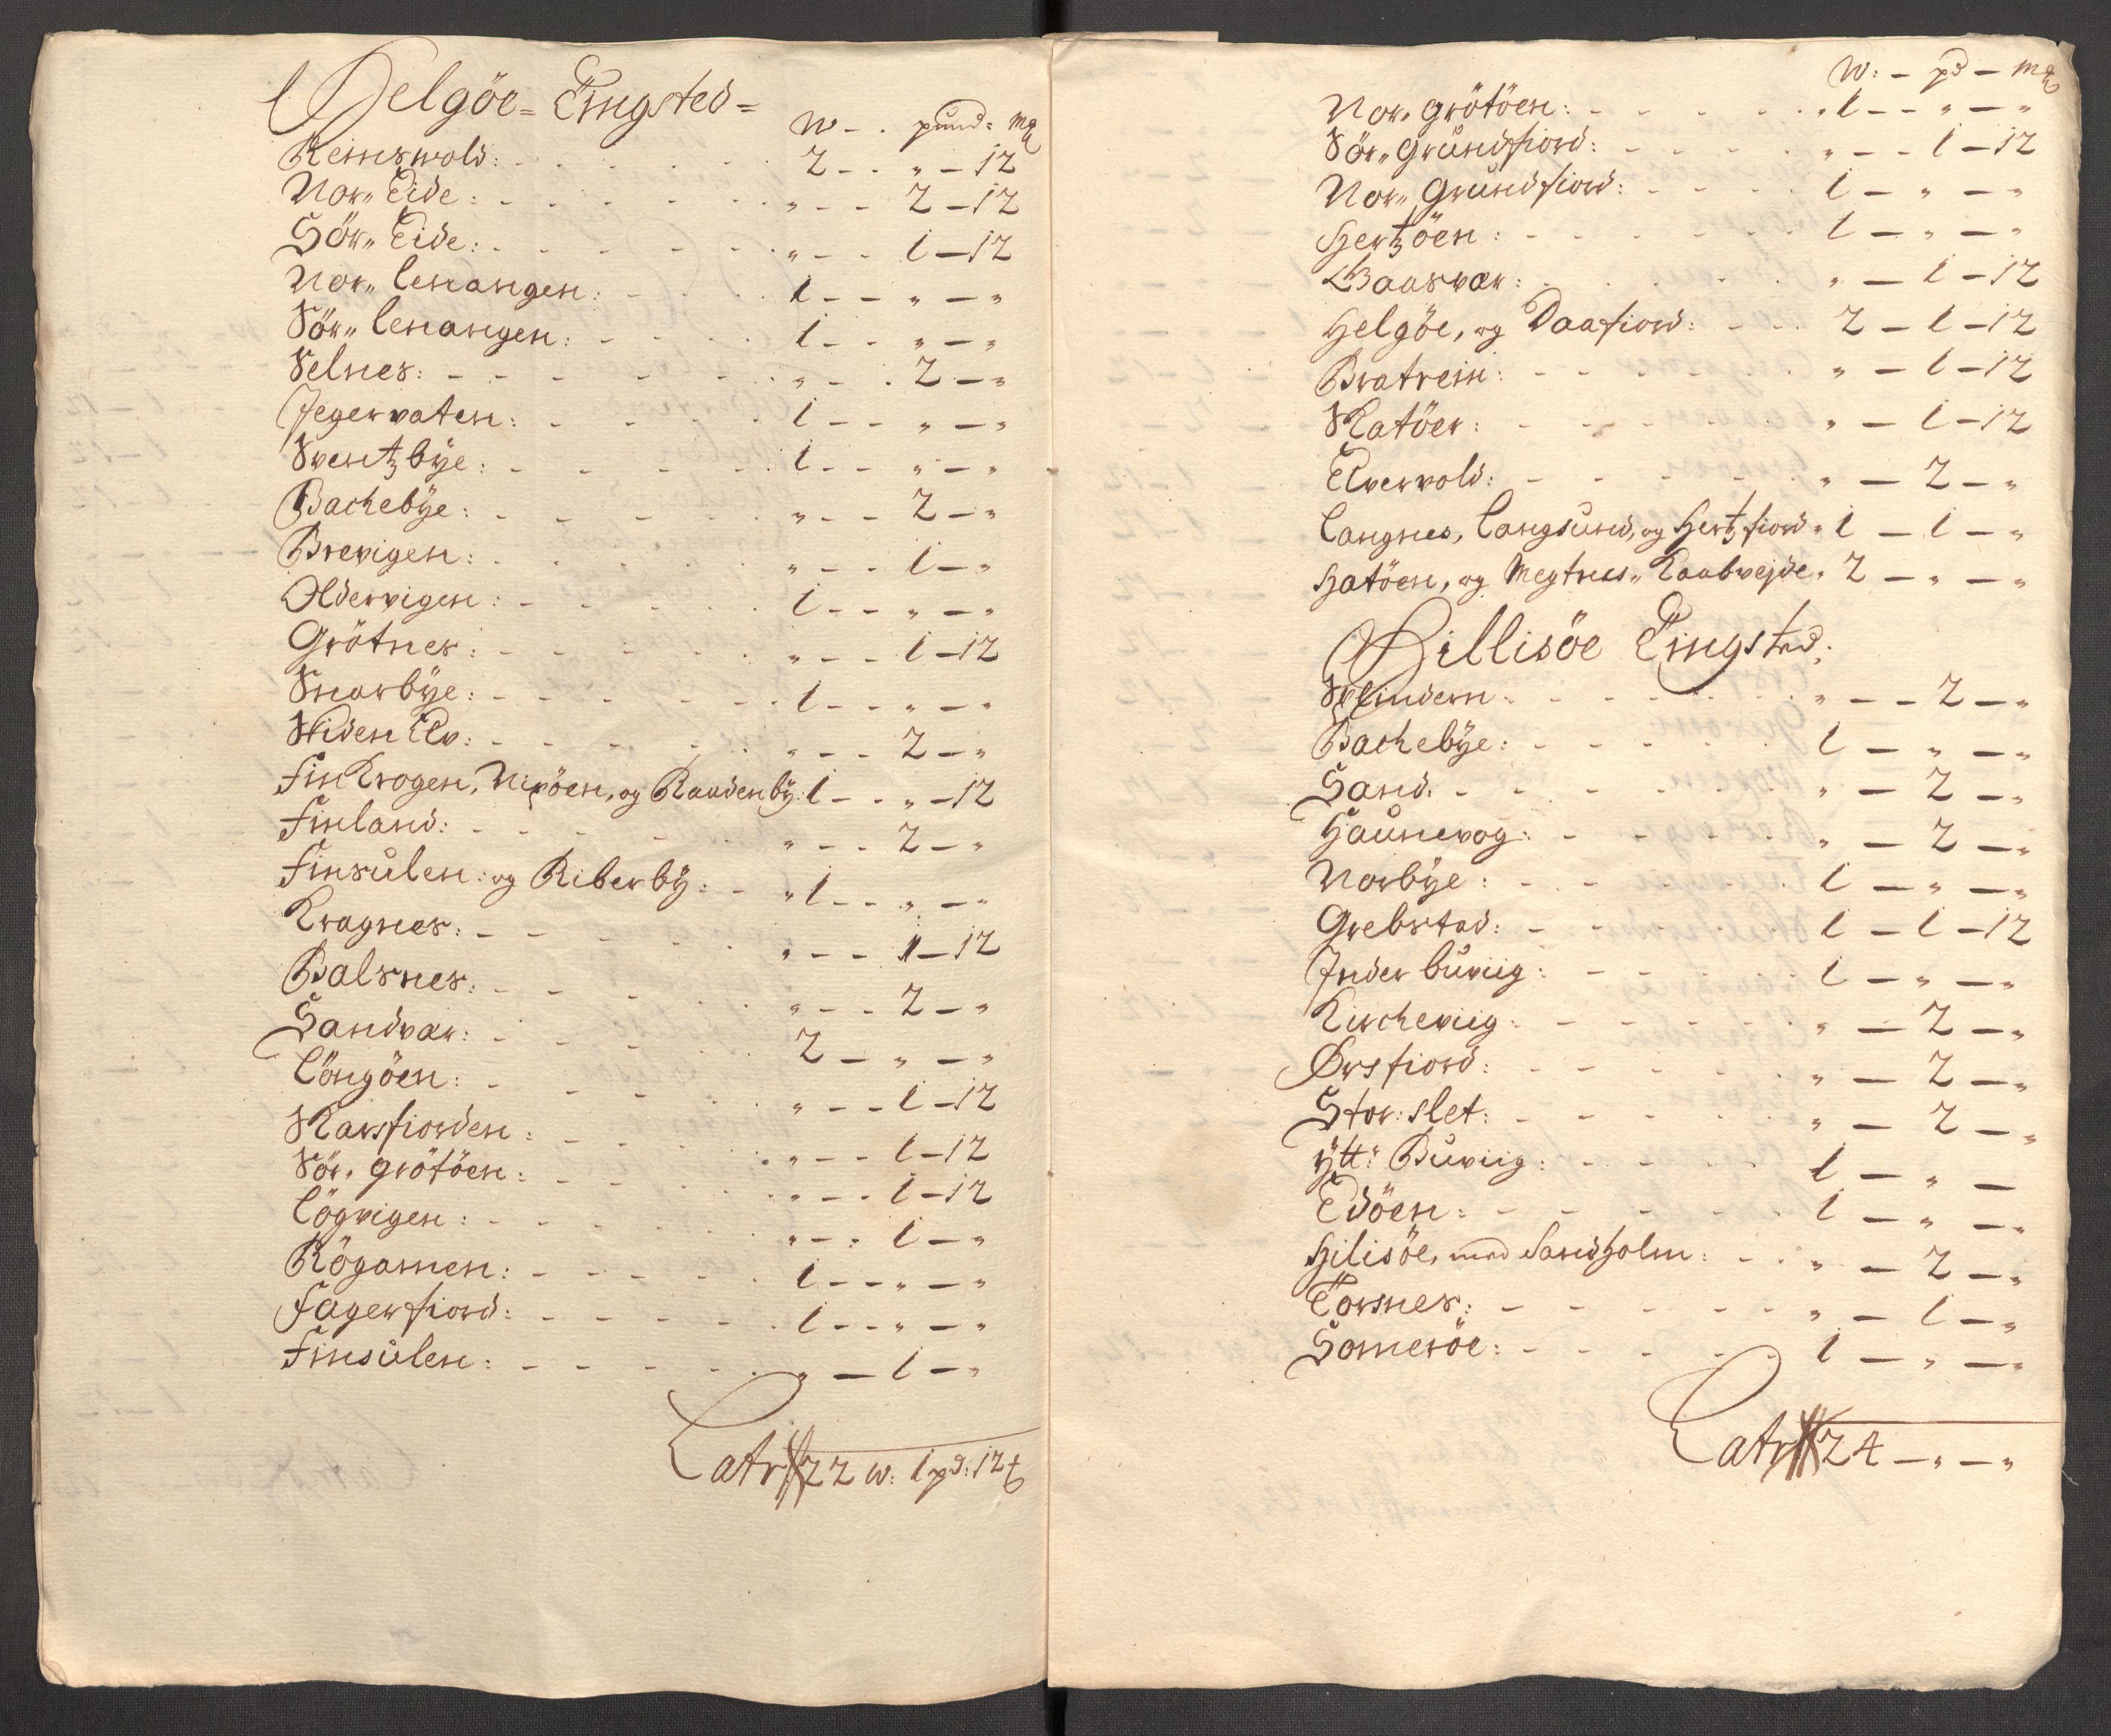 Helgöe= Tingsted=
W - . pund= mɞ
Reinswold: 2 - - „ - 12
Nor„ Eide: „ - - 2 - 12
Sör„ Eide: „ - - 1 - 12
Nor„ Lenangen: 1 - - „ - „
Sör„ Lenangen: 1 - - „ - „
Selnes: „ - - 2 - „
Jegervaten: 1 - - „ - „
Sventzbÿe: 1 - - „ - „
Bachebÿe: „ - - 2 - „
Brevigen: „ - - 1 - „
Oldervigen: 1 - - „ - „
Grötnes: „ - - 1 - 12
Snarbÿe: 1 - - „ - „
Skiden Elv: „ - - 2 - „
FinKrogen, Nipöen, og Raudenbÿ: 1 - - „ - 12
Finland: „ - - 2 - „
Finsulen: og Riberbÿ: 1 - - „ - „
Kragnes: „ - - 1 - 12
Balsnes: „ - - 2 - „
Sandvær: 2 - „ - „
Löngöen: „ - - 1 - 12
Karsfiorden: „ - - 1 - 12
Sör„ grötöen: „ - - 1 - 12
Lögvigen: „ - - 1 - „
Rögamen: 1 - - „ - „
Fagerfiord: 1 - - „ - „
Finsulen: „ - 1 - „
Latr 22 W: 1 pd: 12
W: - pd - mɞ
Nor„ grötöen: 1 - - „ - „
Sör„ Grundfiord: „ - - 1 - 12
Nor„ Grundfiord: 1 - „ - „
Hertzöen: 1 - „ - „
Gaasvær: „ - 1 - 12
Helgöe, og Daafiord: 2 - 1 - 12
Bratrein: „ - 1 - 12
Skatöer: „ - 1 - 12
Elvervold: „ - 2 - „
Langnes, Langsund, og Hertzfiord„ 1 - 1 - „
Hatöen, og Megtnes„ Kaabvejde„ 2 - „ - „
Hillisöe Tingsted:
Splindern: „ - - 2 - „
Bachebÿe: 1 - „ - „
Sand: „ - 2 - „
Haunevog: „ - 2 - „
Norbÿe: 1 - „ - „
Grebstad: 1 - 1 - 12
Inder buviig: 1 - „ - „
Kircheviig: „ - 2 - „
Ørsfiord: „ - 2 - „
Stor: slet: „ - 2 - „
ÿtt: Buviig: 1 - „ -
Edöen: 1 - „ - „
Hilisöe, med Sandholm: „ - 2 - „
Torsnes: „ - 1 - „
Someröe: 1 - „ - „
Latr 24 - „ - „